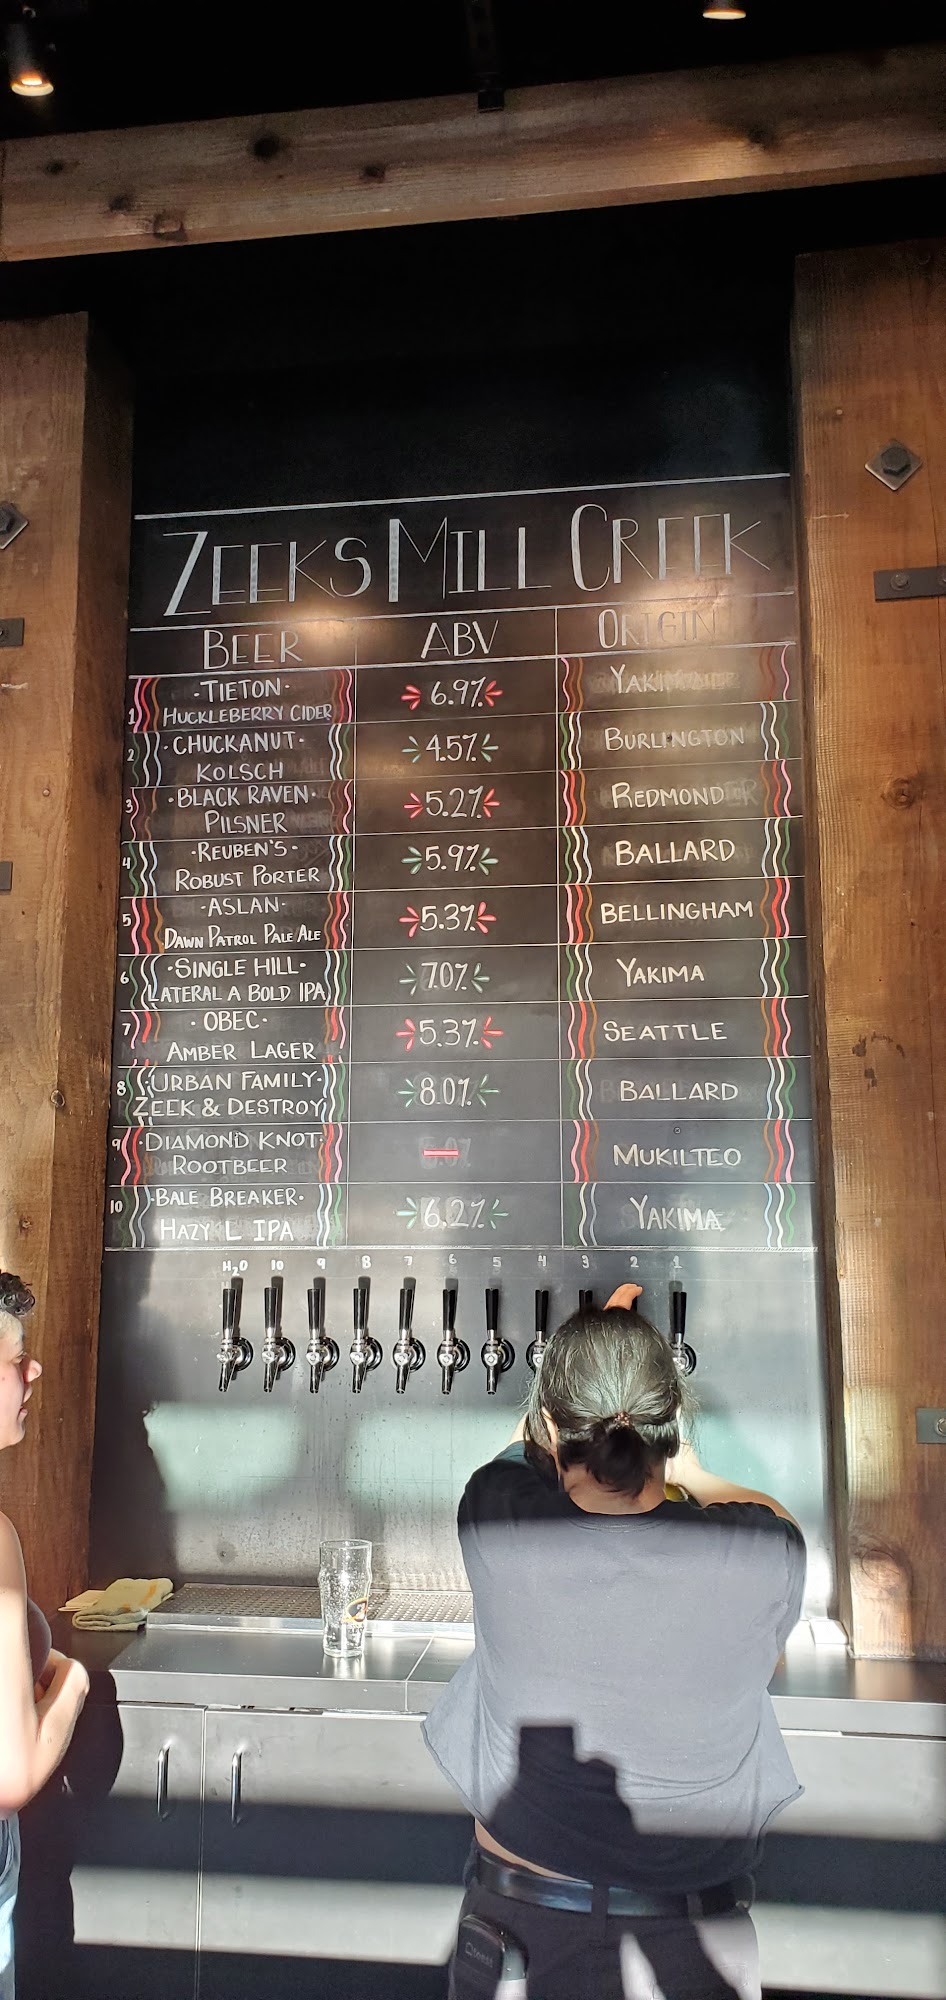 ZEEKS MILL CREEK
BEER ABV ORIGIN
1 ·TIETON· HUCKLEBERRY CIDER 6.9% YAKIMA
2 ·CHUCKANUT· KOLSCH 4.5% BURLINGTON
3 ·BLACK RAVEN· PILSNER 5.2% REDMOND
4 ·REUBEN'S· ROBUST PORTER 5.9% BALLARD
5 ·ASLAN· DAWN PATROL PALE ALE 5.3% BELLINGHAM
6 ·SINGLE HILL· LATERAL A BOLD IPA 7.0% YAKIMA
7 ·OBEC· AMBER LAGER 5.3% SEATTLE
8 ·URBAN FAMILY· ZEEK & DESTROY 8.0% BALLARD
9 ·DIAMOND KNOT· ROOTBEER — MUKILTEO
10 ·BALE BREAKER· HAZY L IPA 6.2% YAKIMA
H2O 10 9 8 7 6 5 4 3 2 1
toast